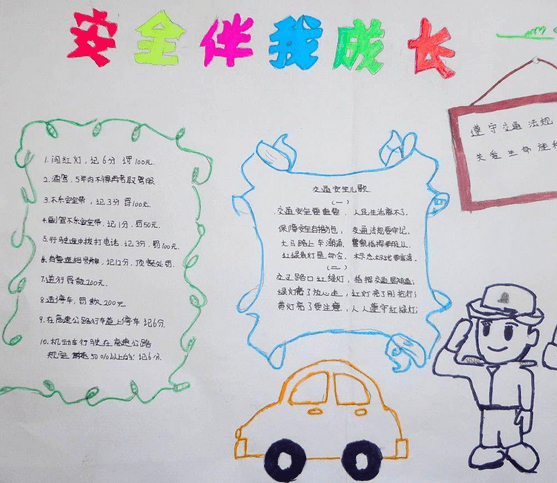 安全伴我成长
遵守交通法规
关爱生命
1.闯红灯,记6分 罚100元.
2.酒驾,5年内不得再考取驾照
3.不系安全带,记3分 罚100元.
4.副驾不系安全带,记1分,罚50元.
5.行驶途中拨打电话,记3分,罚100元.
记12分,顶格处罚.
7.逆行罚款200元.
8.违停车,罚款200元
9.在高速公路行车道上停车 记6分.
10.机动车行驶在高速公路
50%以上的:记6分.
交通安全儿歌
(一)
交通安全最重要,人民生活离不了,
交通法规要牢记,
大马路上车潮涌,
红绿黄灯是命令,
(二)
交叉路口红绿灯,指挥交通
绿灯亮了放心走,红灯亮了别抢行;
黄灯亮了要注意,人人遵守红绿灯.